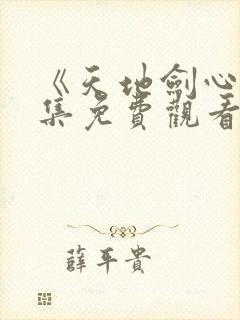 《天地劍心
集免費觀看
薛平貴